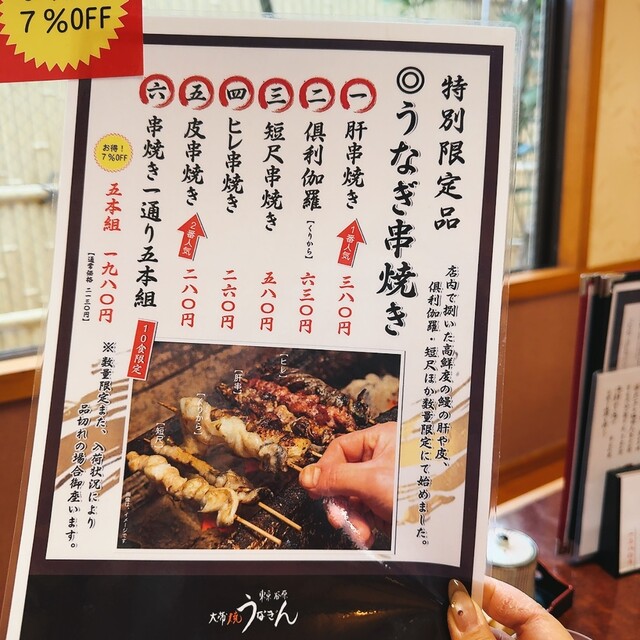 7%OFF
特別限定品
◎うなぎ串焼き
店内で捌いた高鮮度の鰻の肝や皮、
倶利伽羅・短尺ほか数量限定にて始めました。
一 肝串焼き 三八〇円
1番人気
二 倶利伽羅[くりから] 六三〇円
三 短尺串焼き 五八〇円
四 ヒレ串焼き 二六〇円
五 皮串焼き 二八〇円
2番人気
六 串焼き一通り五本組
10食限定
お得!
7%OFF
五本組 一九八〇円
[通常価格 二一三〇円]
※数量限定また、入荷状況により
品切れの場合御座います。
[ヒレ]
[肝串]
[くりから]
[短尺]
東京 谷原
大蒲焼うなきん